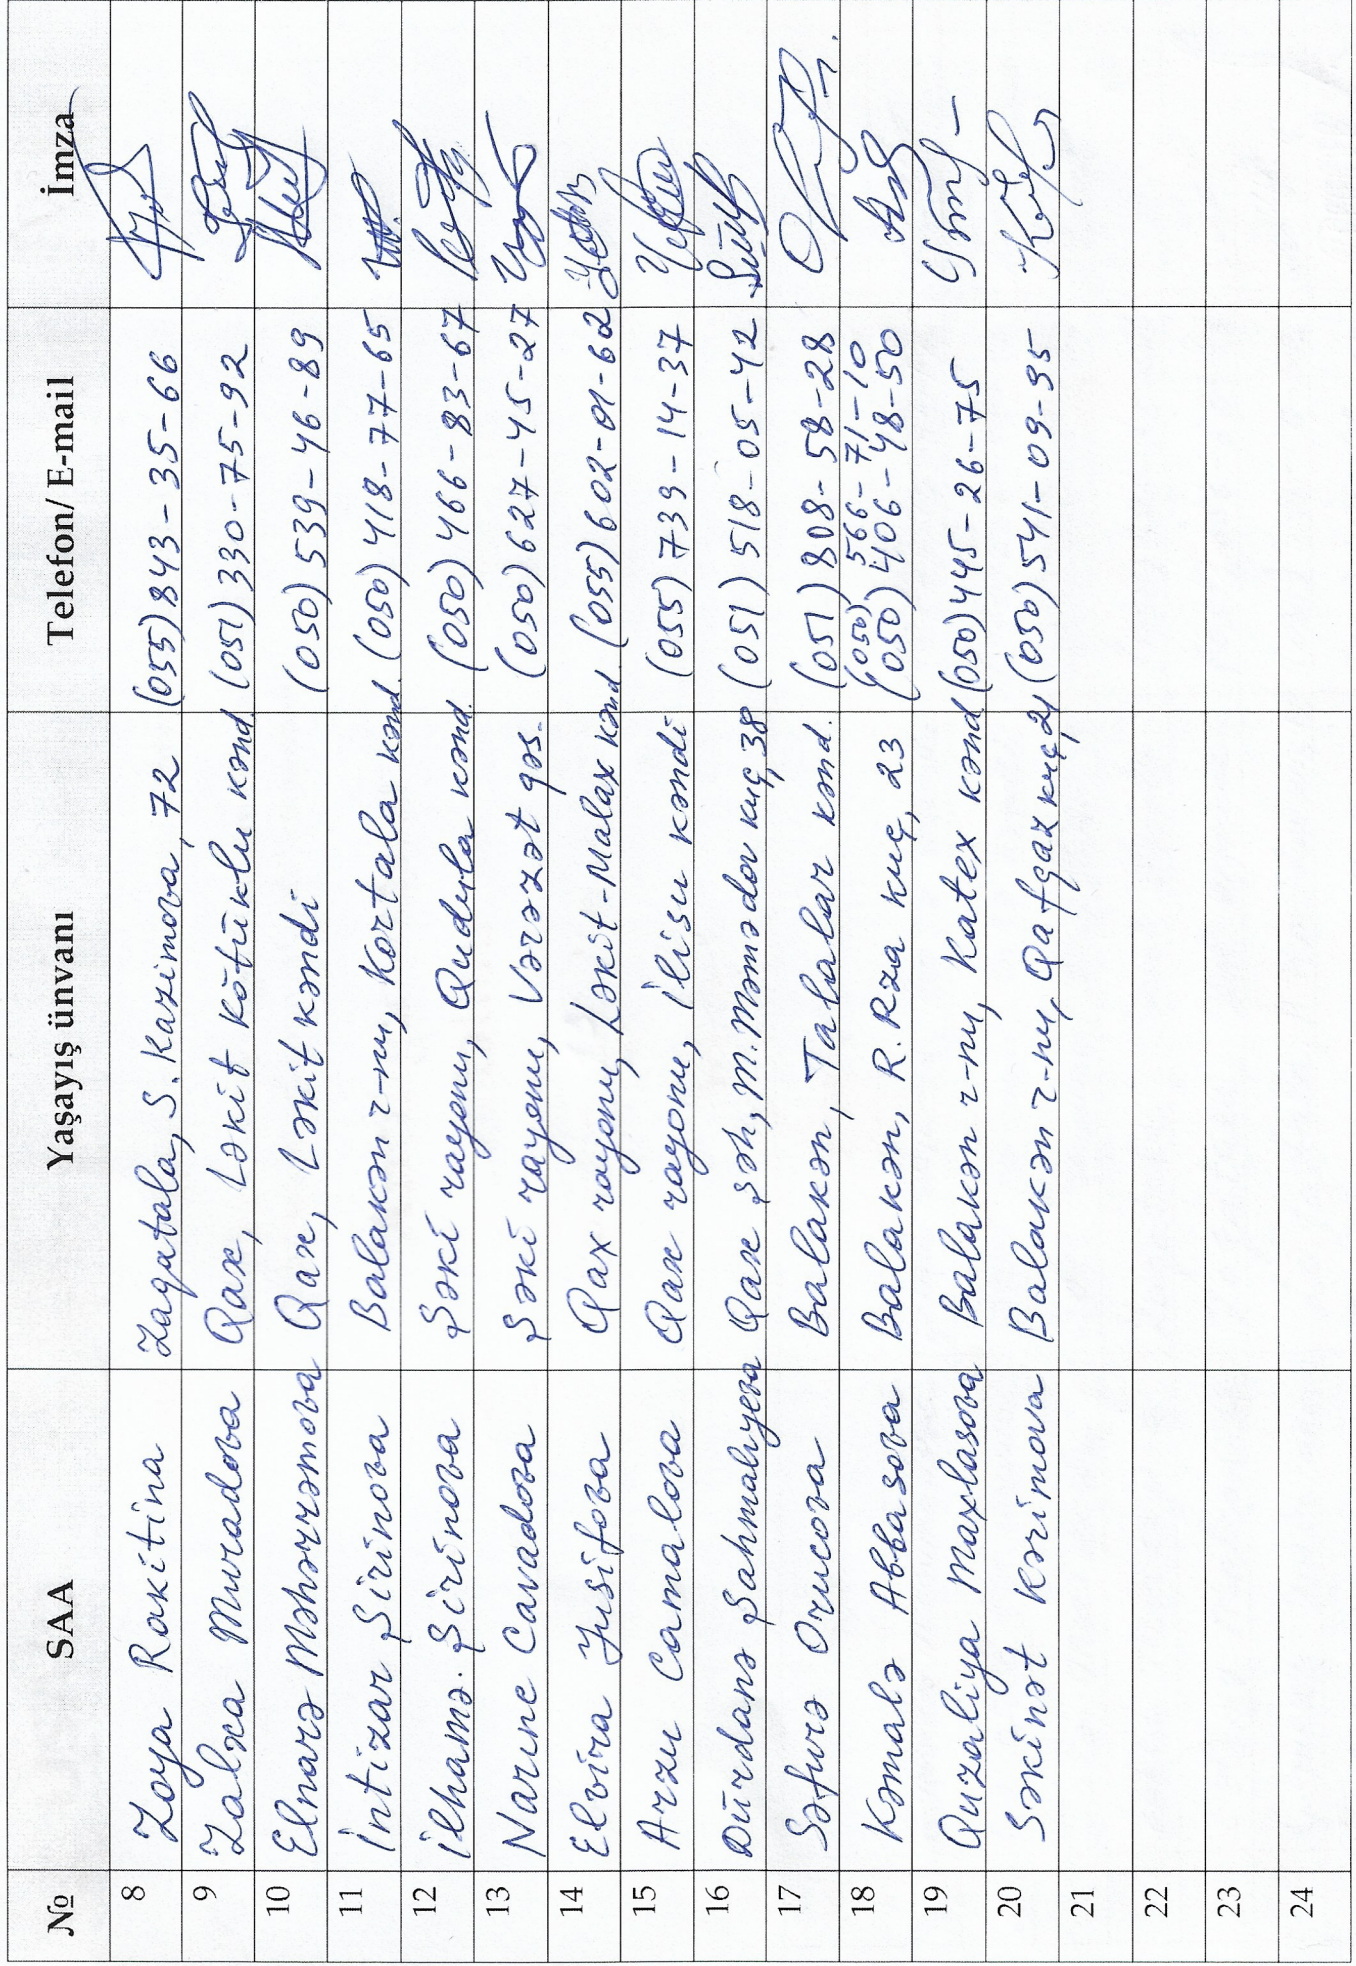 № SAA Yaşayış ünvanı Telefon/ E-mail İmza
8 Zoya Rakitina Zaqatala, S. Kazimova, 72 (055) 843-35-66
9 Zalxa Muradova Qax, Ləkit Kötüklu kənd (051) 330-75-92
10 Elnarə Məhərrəmova Qax, Ləkit kəndi (050) 539-46-89
11 İntizar Şirinova Balakən r-nu, Kortala kənd. (050) 418-77-65
12 İlhamə Şirinova Şəki rayonu, Qudula kənd. (050) 466-83-67
13 Narınc Cavadova Şəki rayonu, Vərəzət qəs. (050) 627-45-27
14 Elvira Yusifova Qax rayonu, Ləkit-Malax kənd (055) 602-01-62
15 Arzu Camalova Qax rayonu, İlisu kəndi (055) 739-14-37
16 Dürdanə Şahmalıyeva Qax şəh, M.Məmədov kuç, 38 (051) 518-05-42
17 Səfurə Orucova Balakən, Talalar kənd. (051) 808-58-28
18 Kəmalə Abbasova Balakən, R.Rza kuç, 23 (050) 566-71-10
(050) 406-48-50
19 Quzaliya Maxlasova Balakən r-nu, Katex kənd (050) 445-26-75
20 Səkinət Kərimova Balakən r-nu, Qafqaz kuç, 21 (050) 541-09-95
21
22
23
24